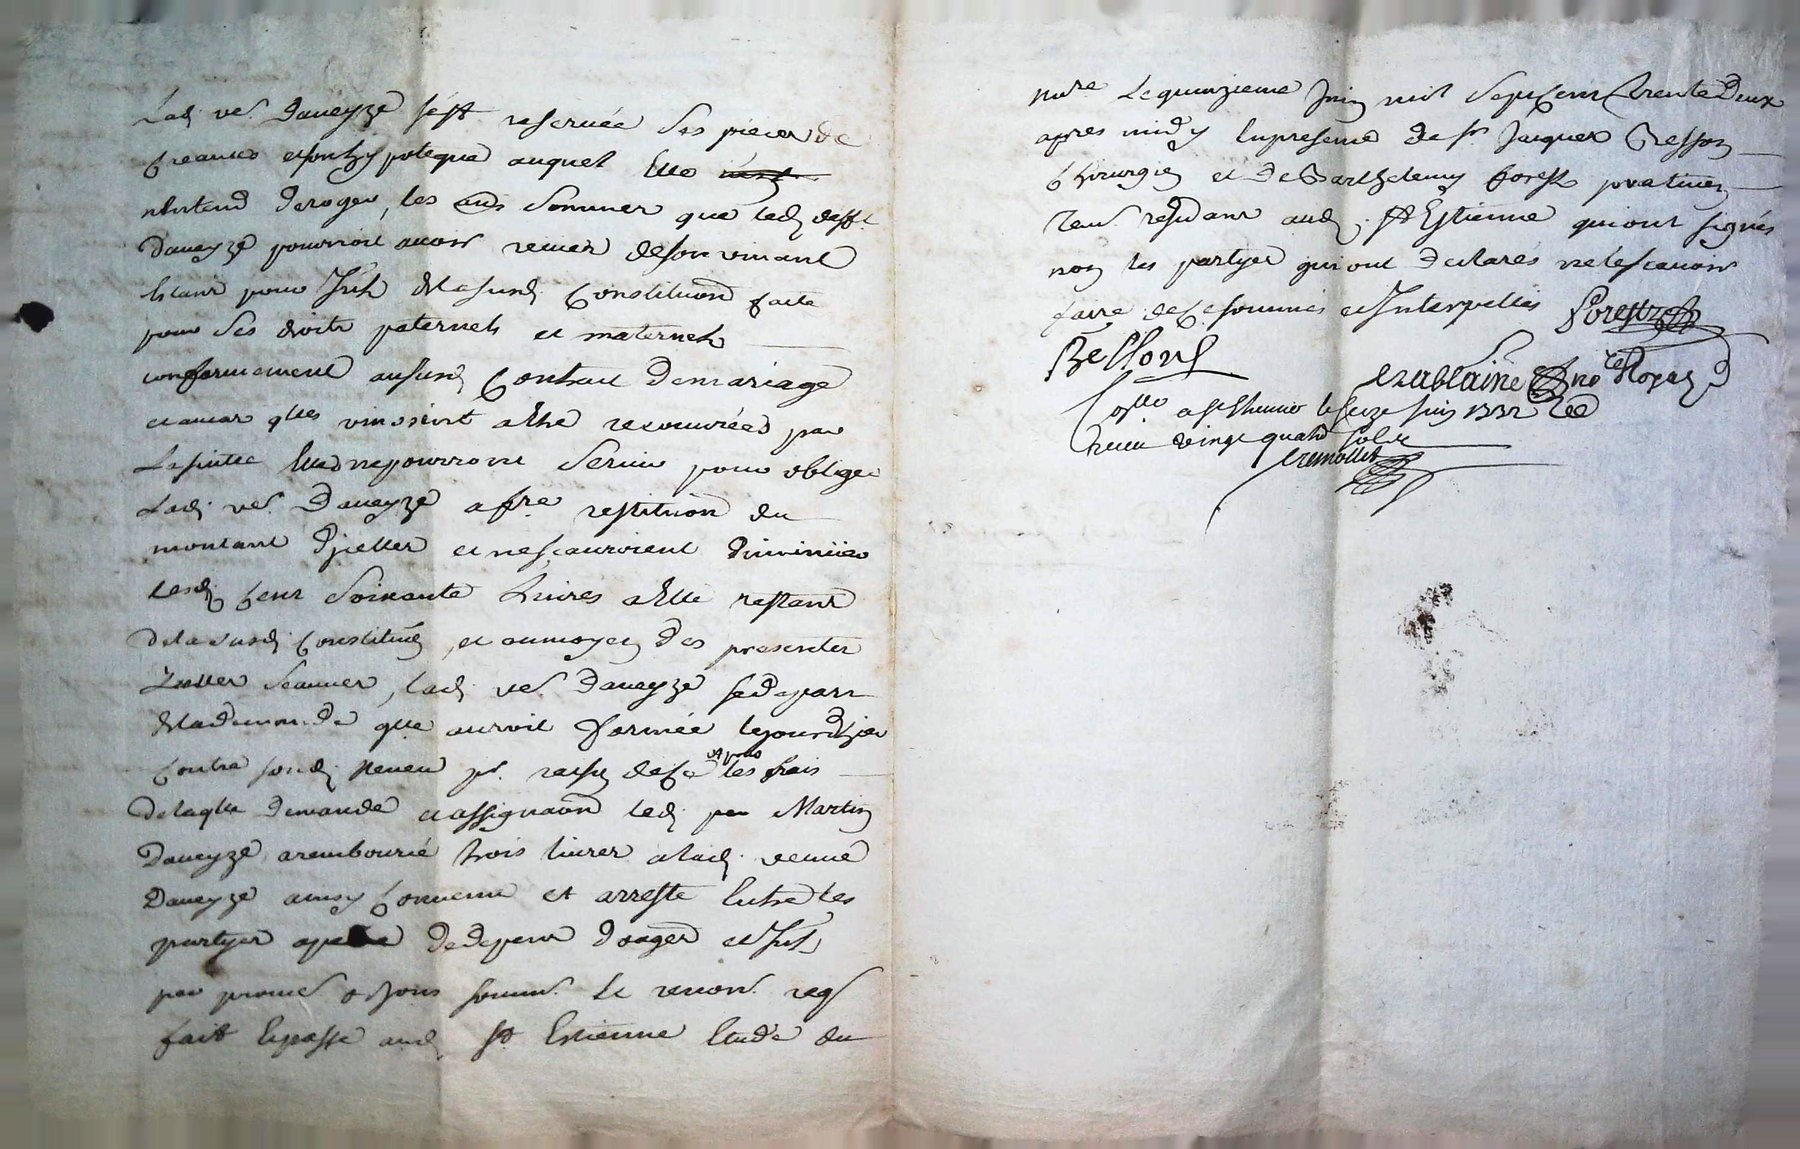 Lad. ve. Daveyze s'est reservée ses pieces de
creances et son hypoteque auquel Elle
n'Entend deroger, les sommes que led. deff.
Daveyze pourroit avoir receues de son vivant
Etant pour de la susd. Constitution faite
pour ses droits paternels et maternels
conformement au susd. Contract de mariage
et autres qlles viendroient a Etre recouvrées par
La suitte Elles ne pourront servir pour obliger
Lad. ve. Daveyze a fre. restitution du
montant d'jcelles et ne scauroient diminuer
lesd. Cent soixante Livres a Elle restant
de la susd. Constituon, et au moyen des presentes
lad. ve. Daveyze se depart
de la demande qlle auroit formée le jour d'hier
Contre sond. neveu pr. raison de ce les frais
de laqlle demande et assignaon led. Martin
Daveyze a remboursé trois livres a lad. veuve
Daveyze ainsy Convenu et arresté Entre les
partyes a peine de depens domages et Jnts.
par promes. obons soumis. et renon. reqs
fait Et passé aud. St. Estienne Etude du
nre. Le quinzieme Juin mil sept Cent trente deux
apres midy En presence de sr. Jacques Besson
Chirurgien et de Barthelemy Forest praticien
resident aud. St Estienne qui ont signés
non les partyes qui ont declarés ne le scavoir
faire de ce sommés et Interpellés Forest
Besson
nore Royal
Conlle a St Ethienne le seize juin 1732
Receu vingt quatre sols